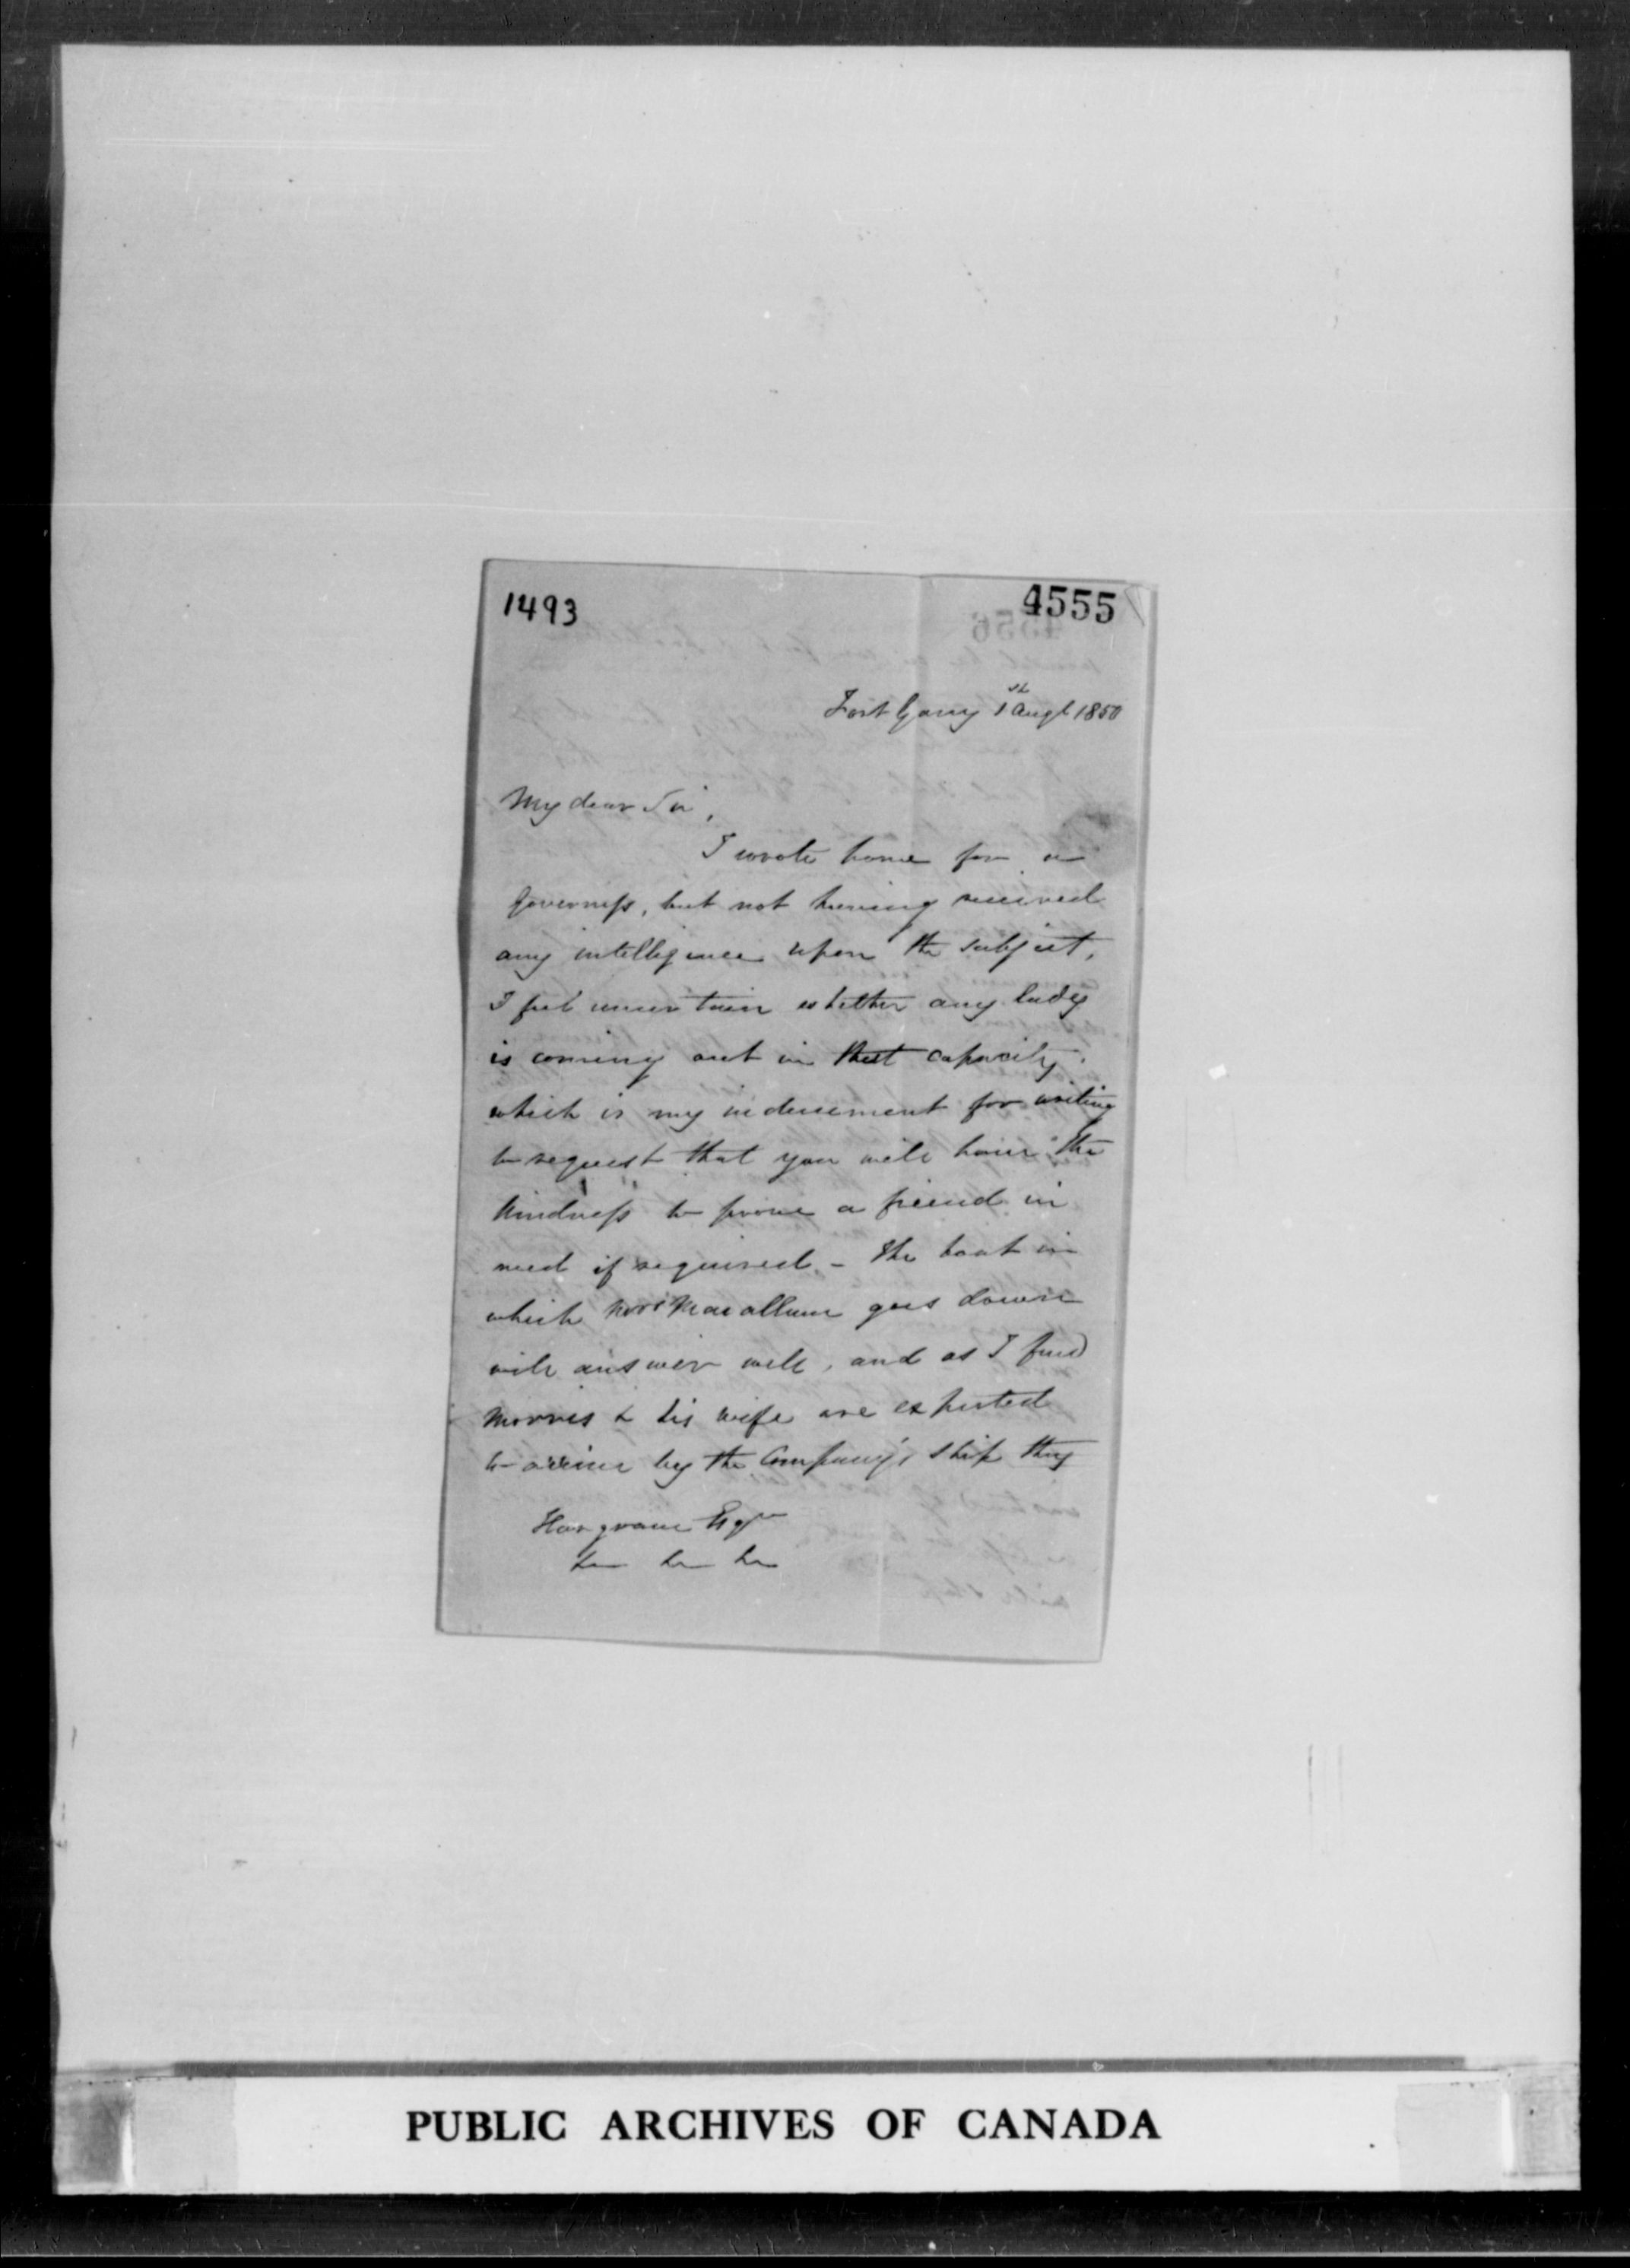 1493
4555
Fort Garry 1st Augt 1850
My dear Sir,
I wrote home for a
Governess, but not having received
any intelligence upon the subject,
I feel uncertain whether any lady
is coming out in that capacity,
which is my inducement for writing
to request that you will have the
kindness to prove a friend in
need if required. - The boat in
which Mrs Macallum goes down
will answer well, and as I find
Morris & his wife are expected
to arrive by the Company's ship they
Hargrave Esqr
&c &c &c
PUBLIC ARCHIVES OF CANADA